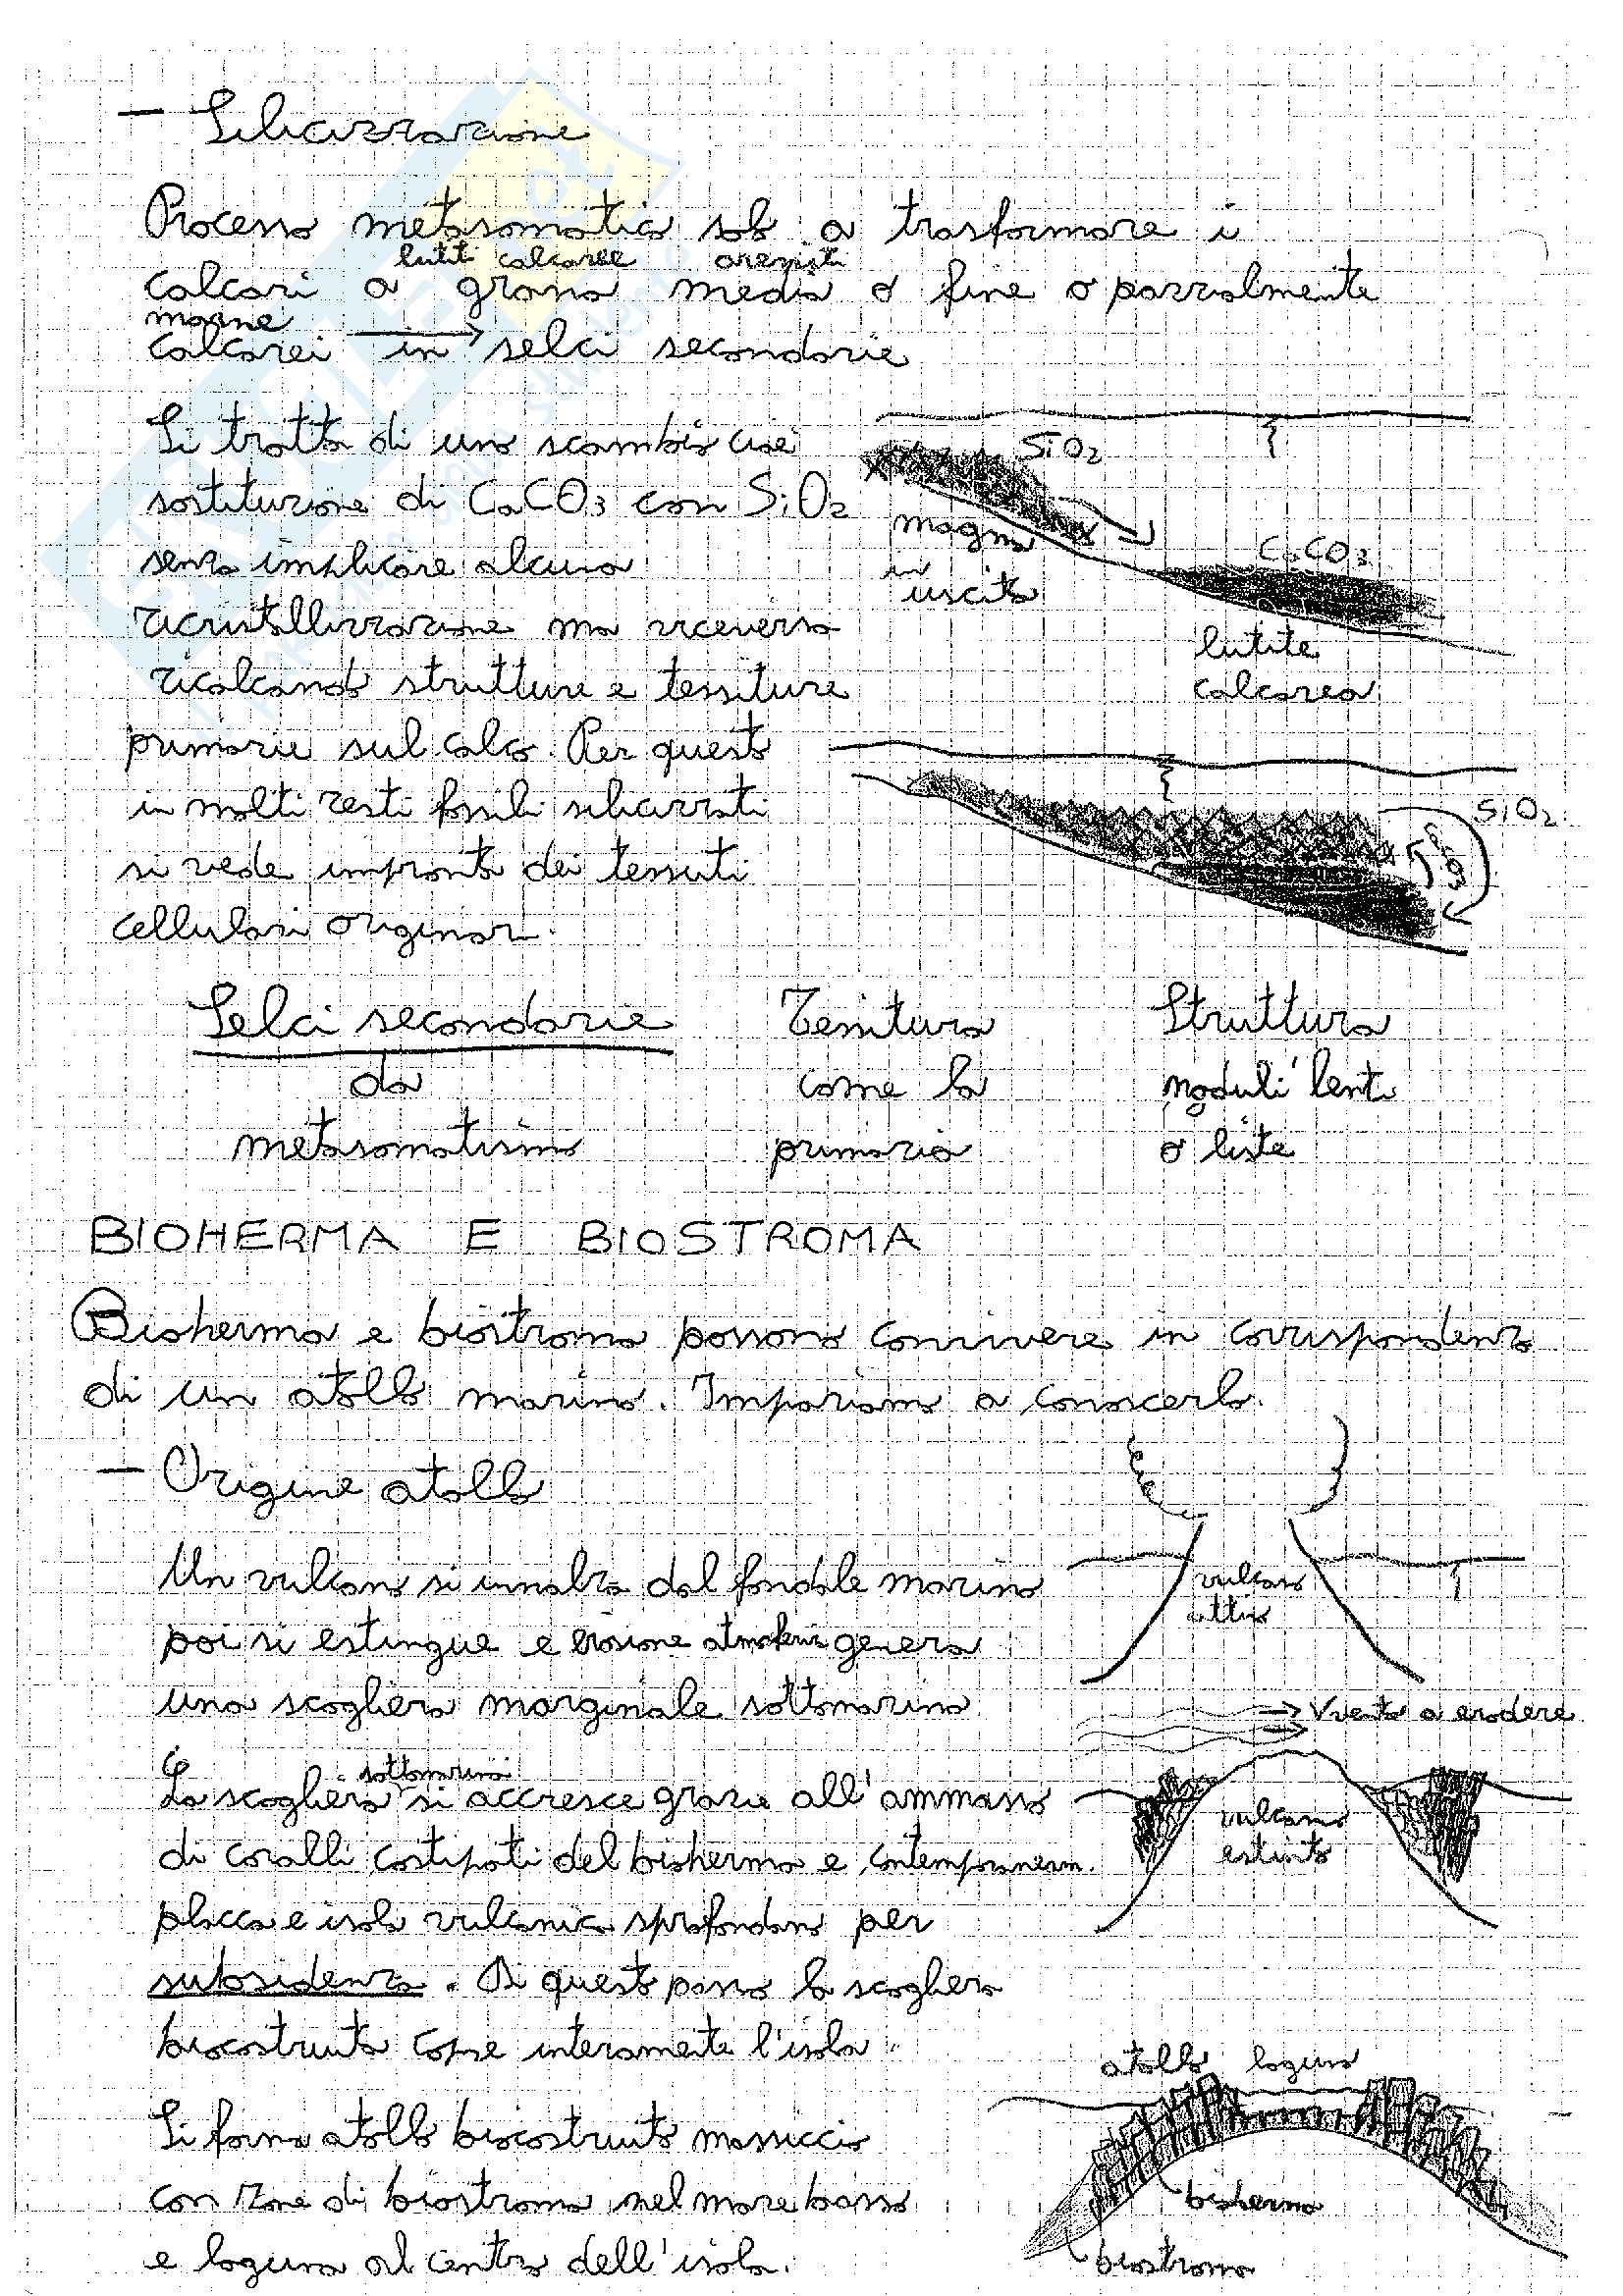 - Silicizzazione
Processo metasomatico solo a trasformare i
lutiti calcaree areniti
calcari a grana media o fine o parzialmente
marne
calcarei → in selci secondarie
Si tratta di uno scambio cioè
sostituzione di CaCO3 con SiO2
senza implicare alcuna
ricristallizzazione ma viceversa
ricalcando strutture e tessiture
primarie sul calco. Per questo
in molti resti fossili silicizzati
si vede impronta dei tessuti
cellulari originari.
SiO2
magma
in
uscita
CaCO3
lutite
calcarea
SiO2
CaCO3
Selci secondarie Tessitura Struttura
da come la noduli lenti
metasomatismo primaria o liste
BIOHERMA E BIOSTROMA
Bioherma e biostroma possono convivere in corrispondenza
di un atollo marino. Impariamo a conoscerlo.
- Origine atollo
Un vulcano si innalza dal fondale marino
poi si estingue e erosione atmosferica genera
una scogliera marginale sottomarina
vulcano
attivo
→ Vento a erodere
sottomarina
La scogliera si accresce grazie all'ammasso
di coralli costipati del bioherma e contemporaneam.
placca e isola vulcanica sprofondano per
subsidenza. Di questo passo la scogliera
biocostruita copre interamente l'isola.
vulcano
estinto
Si forma atollo biocostruito massiccio
con zone di biostroma nel mare basso
e laguna al centro dell'isola.
atollo laguna
bioherma
biostroma